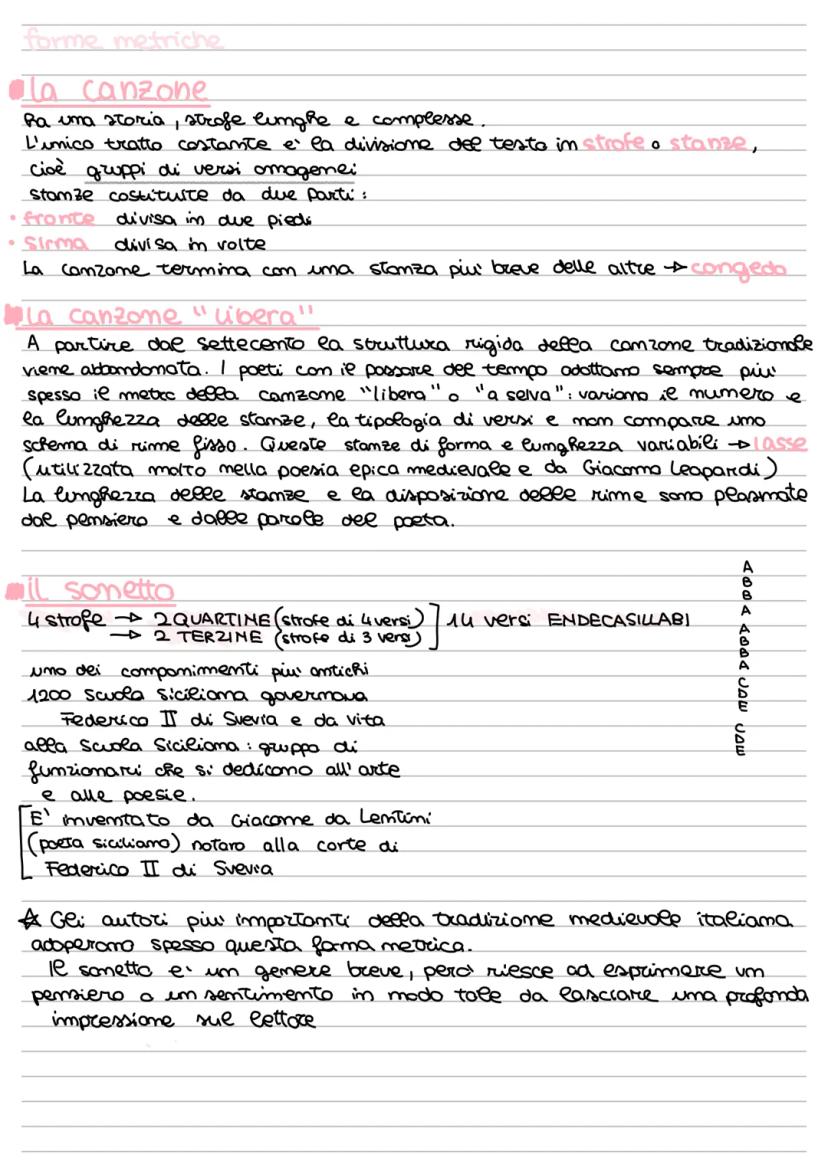 forme metriche
la canzone
Ha una storia, strofe lunghe e complesse.
L'unico tratto costante e' la divisione del testo in strofe o stanze,
cioè gruppi di versi omogenei
stanze costituite da due parti:
• fronte divisa in due piedi
• sirma divisa in volte
La canzone termina con una stanza piu' breve delle altre → congedo
la canzone "libera"
A partire dal settecento la struttura rigida della canzone tradizionale
viene abbandonata. I poeti con il passare del tempo adottano sempre piu'
spesso il metro della canzone "libera" o "a selva": variano il numero e
la lunghezza delle stanze, la tipologia di versi e non compare uno
schema di rime fisso. Queste stanze di forma e lunghezza variabili → lasse
(utilizzata molto nella poesia epica medievale e da Giacomo Leopardi)
La lunghezza delle stanze e la disposizione delle rime sono plasmate
dal pensiero e dalle parole del poeta.
il sonetto
4 strofe → 2 QUARTINE (strofe di 4 versi) ] 14 versi ENDECASILLABI
→ 2 TERZINE (strofe di 3 versi)
uno dei componimenti piu' antichi
1200 scuola siciliana governava
Federico II di Svevia e da vita
alla Scuola Siciliana: gruppo di
funzionari che si dedicano all'arte
e alle poesie.
E' inventato da Giacome da Lentini
(poeta siciliano) notaro alla corte di
Federico II di Svevia
☆ Gli autori piu' importanti della tradizione medievale italiana
adoperano spesso questa forma metrica.
Il sonetto e' un genere breve, pero' riesce ad esprimere un
pensiero o un sentimento in modo tale da lasciare una profonda
impressione sul lettore
A
B
B
A
A
B
B
A
C
D
E
C
D
E